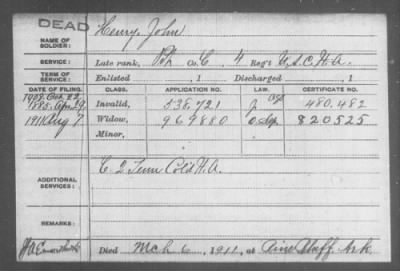 DEAD
NAME OF SOLDIER: Henry, John
SERVICE: Late rank, Pvt Co. C, 4 Reg't U.S.C.H.A.
TERM OF SERVICE: Enlisted , 1 Discharged , 1
DATE OF FILING. CLASS. APPLICATION NO. LAW. CERTIFICATE NO.
1885 Apr 29 Invalid, 538,721 480,482
1911 Aug 7 Widow, 969880 820525
Minor,
ADDITIONAL SERVICES: C 2 Tenn Cold H.A.
REMARKS:
Died Mch 6, 1911, at Pine Bluff Ark